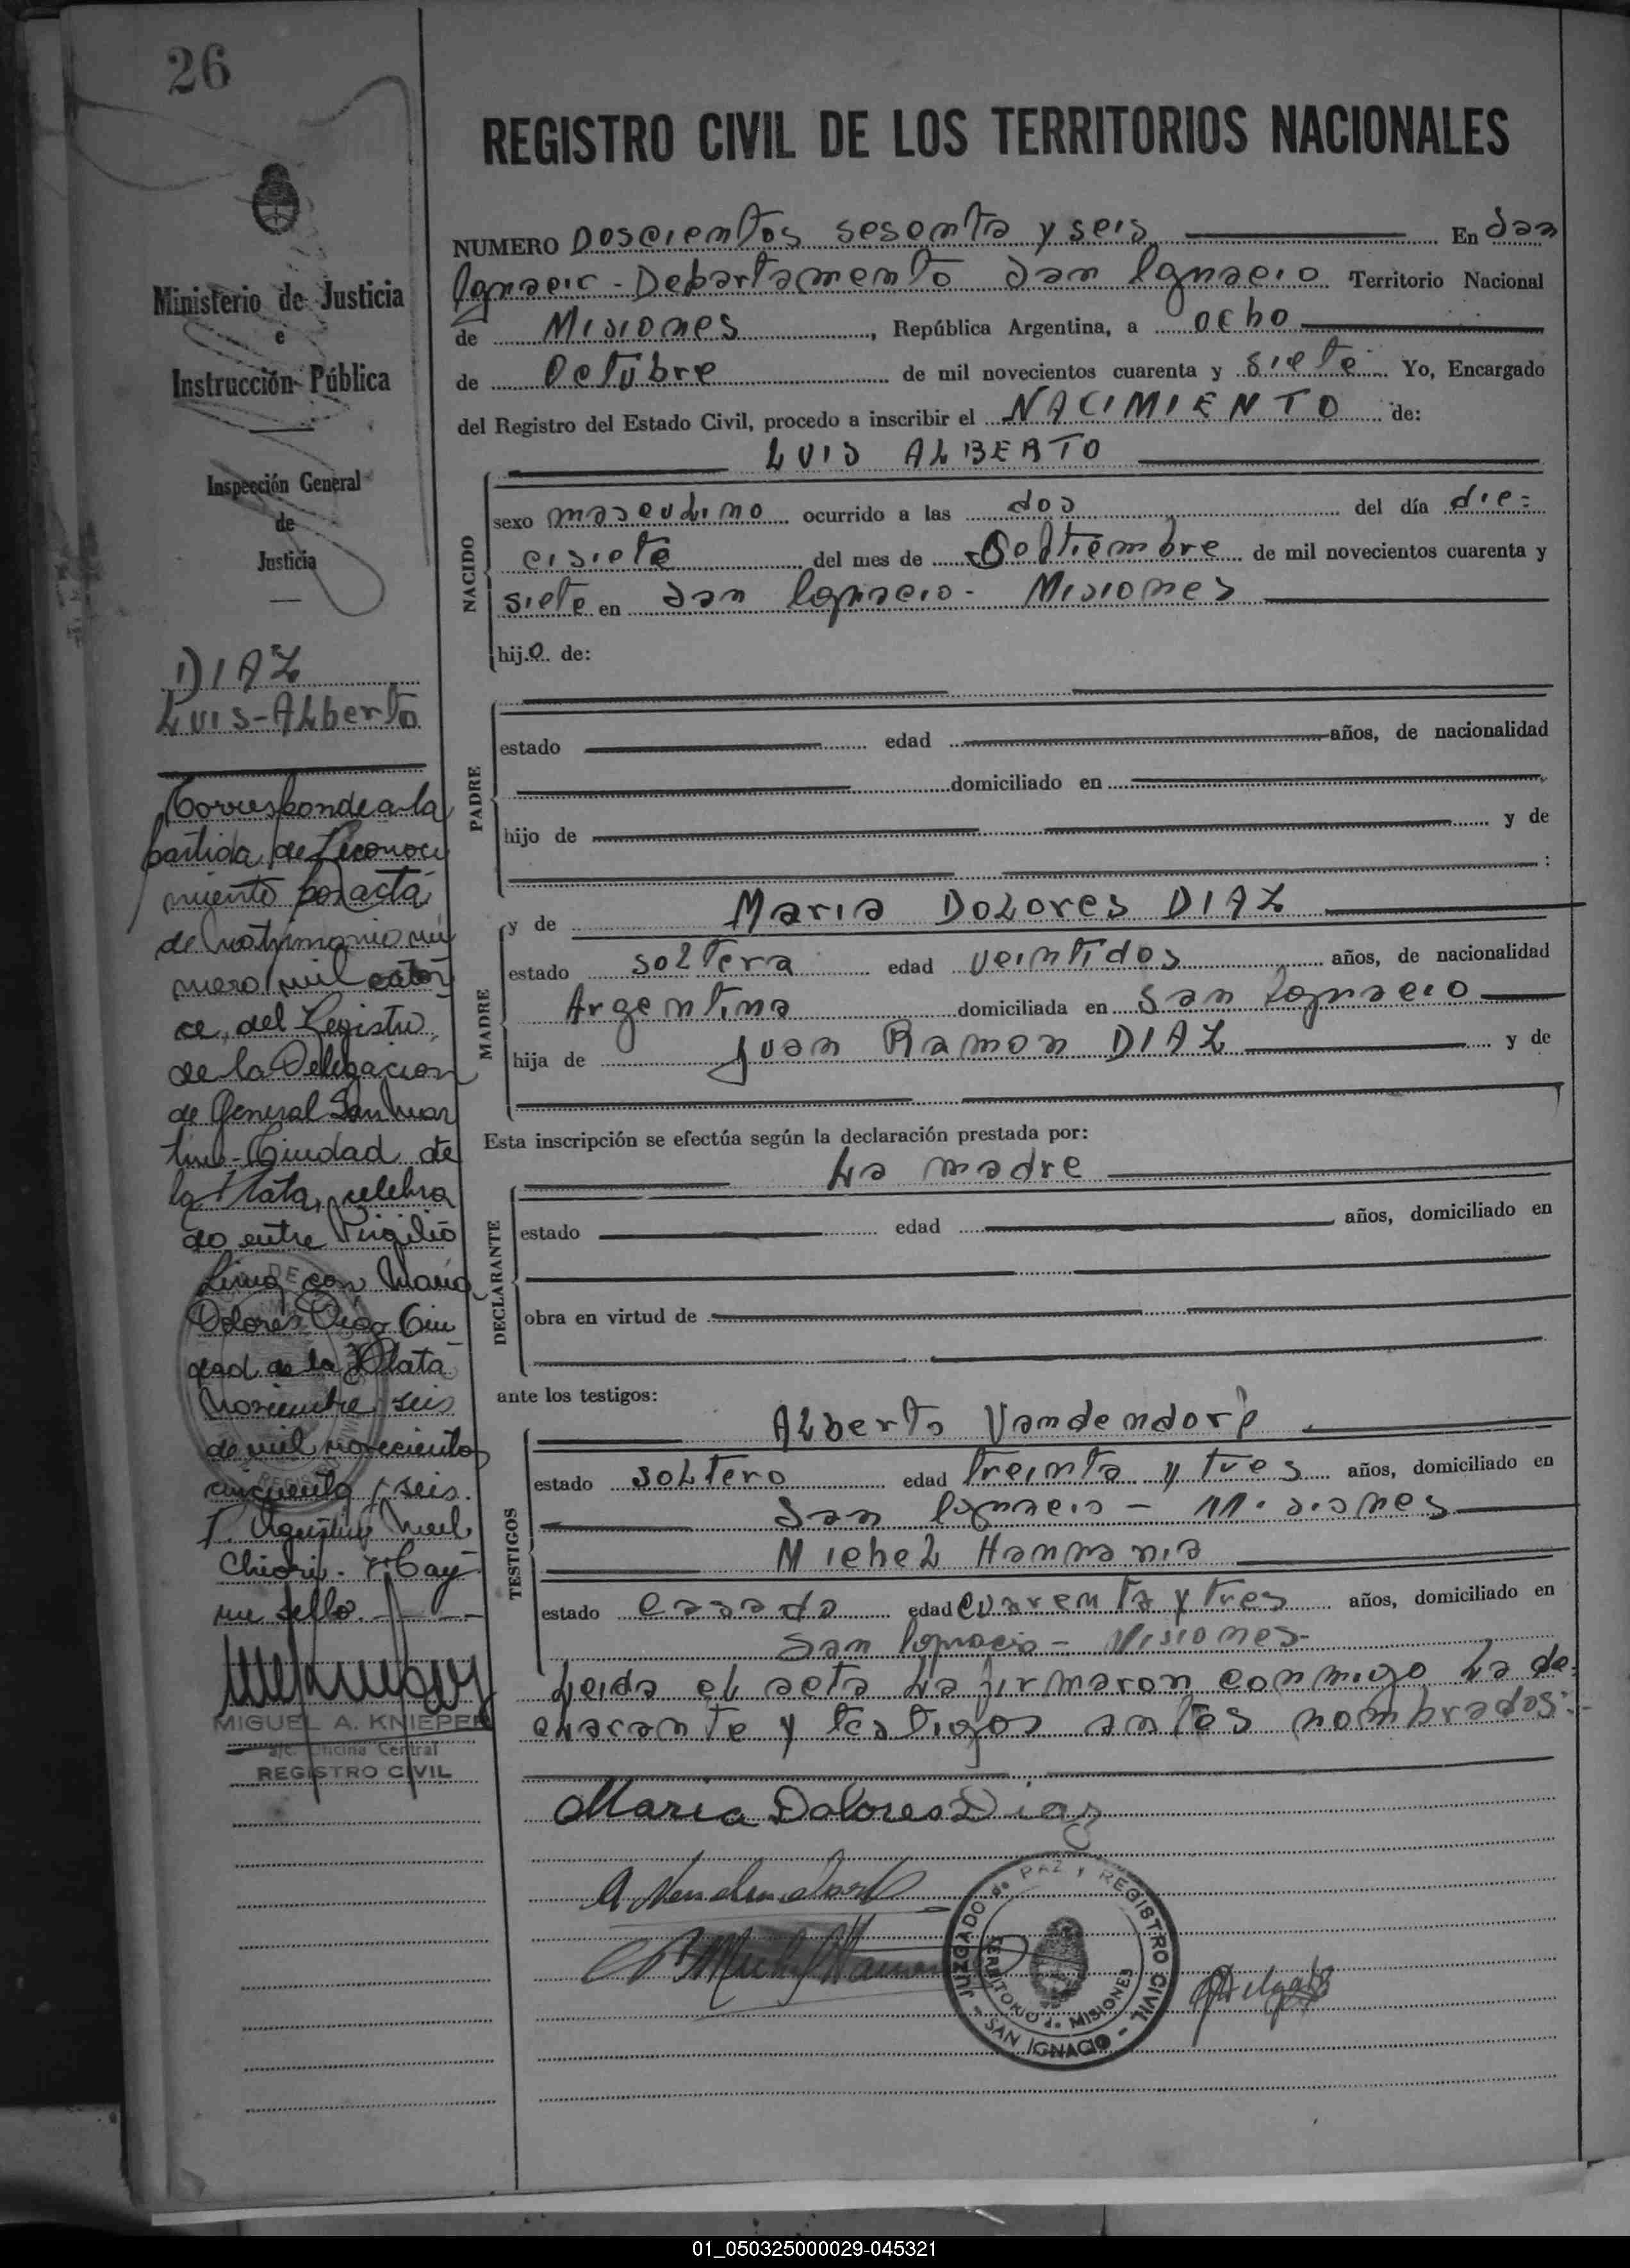 26
REGISTRO CIVIL DE LOS TERRITORIOS NACIONALES
Ministerio de Justicia
e
Instrucción Pública
Inspección General
de
Justicia
DIAZ
Luis-Alberto
Corresponde a la
partida de Reconoci
miento por acta
de matrimonio nú
mero mil cator
ce, del Registro
de la Delegacion
de General San Mar
tin - Ciudad de
la Plata, celebra
do entre Virgilio
Lima con Maria
Dolores Diaz Ciu
dad de la Plata
Noviembre seis
de mil novecientos
cincuenta y seis.
mi sello.
MIGUEL A. KNIEPER
a/c. Oficina Central
REGISTRO CIVIL
NUMERO Doscientos sesenta y seis En San
Ignacio - Departamento San Ignacio Territorio Nacional
de Misiones, República Argentina, a ocho
de Octubre de mil novecientos cuarenta y siete Yo, Encargado
del Registro del Estado Civil, procedo a inscribir el NACIMIENTO de:
LUIS ALBERTO
NACIDO
sexo masculino ocurrido a las dos del día die=
cisiete del mes de Septiembre de mil novecientos cuarenta y
siete en San Ignacio - Misiones
hijo de:
PADRE
estado edad años, de nacionalidad
domiciliado en
hijo de y de
:
MADRE
y de Maria Dolores DIAZ
estado soltera edad veintidos años, de nacionalidad
Argentina domiciliada en San Ignacio
hija de Juan Ramon DIAZ y de
Esta inscripción se efectúa según la declaración prestada por:
La madre
DECLARANTE
estado edad años, domiciliado en
obra en virtud de
ante los testigos:
TESTIGOS
Alberto Vandendorp
estado soltero edad treinta y tres años, domiciliado en
San Ignacio - Misiones
Michel Hannania
estado casado edad cuarenta y tres años, domiciliado en
San Ignacio - Misiones-
Leida el acta la firmaron conmigo la de=
clarante y testigos antes nombrados:-
Maria Dolores Diaz
A. Vandendorp
JUZGADO de PAZ Y REGISTRO CIVIL
TERRITORIO de MISIONES
- SAN IGNACIO -
01_050325000029-045321